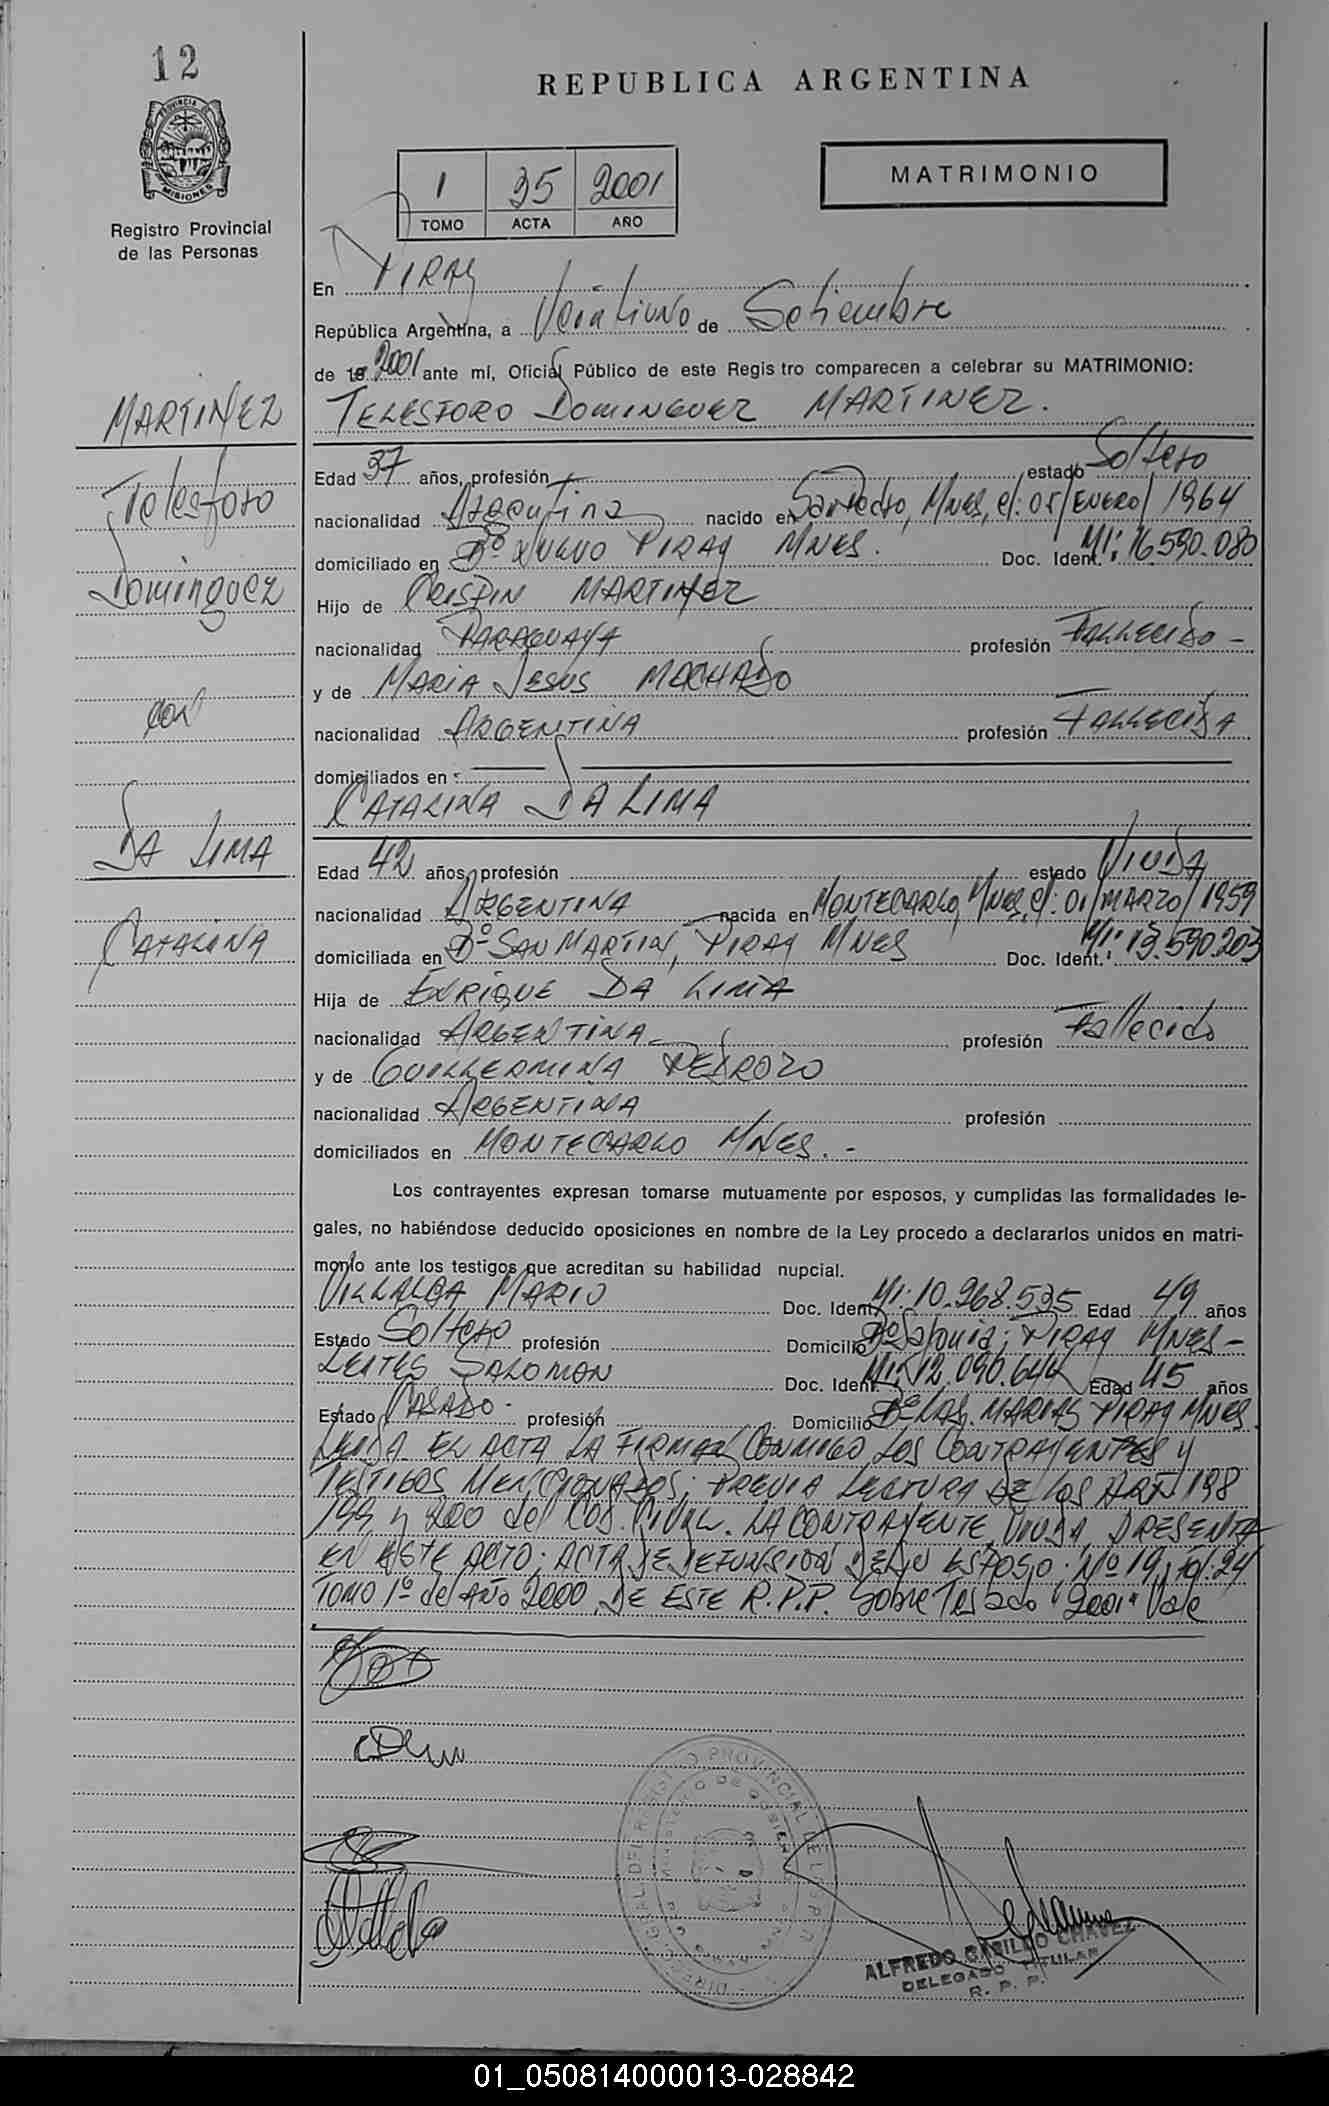 12
REPUBLICA ARGENTINA
PROVINCIA DE
MISIONES
MATRIMONIO
1 35 2001
TOMO ACTA AÑO
Registro Provincial
de las Personas
En PIRAY
República Argentina, a Veintiuno de Setiembre
de 19 2001 ante mí, Oficial Público de este Regis tro comparecen a celebrar su MATRIMONIO:
MARTINEZ
TELESFORO DOMINGUEZ MARTINEZ.
Edad 37 años, profesión estado Soltero
Telesforo
nacionalidad Argentina nacido en San Pedro, Mnes, el: 05/ENERO/1964
domiciliado en Bº NUEVO PIRAY MNES. Doc. Ident. MI: 16.590.080
Dominguez
Hijo de CRISPIN MARTINEZ
nacionalidad PARAGUAYA profesión FALLECIDO -
y de MARIA JESUS MACHADO
con
nacionalidad ARGENTINA profesión FALLECIDA
domiciliados en
CATALINA DA LIMA
DA LIMA
Edad 42 años, profesión estado VIUDA
nacionalidad ARGENTINA nacida en MONTECARLO, MNES, el: 01/MARZO/1959
CATALINA
domiciliada en Bº SAN MARTIN, PIRAY MNES Doc. Ident. MI: 13.590.203
Hija de ENRIQUE DA LIMA
nacionalidad ARGENTINA profesión Fallecido
y de GUILLERMINA PEDROZO
nacionalidad ARGENTINA profesión
domiciliados en MONTECARLO MNES. -
Los contrayentes expresan tomarse mutuamente por esposos, y cumplidas las formalidades le-
gales, no habiéndose deducido oposiciones en nombre de la Ley procedo a declararlos unidos en matri-
monio ante los testigos que acreditan su habilidad nupcial.
VILLALBA MARIO Doc. Ident. MI: 10.268.535 Edad 49 años
Estado Soltero profesión Domicilio PIRAY MNES -
LEITES SALOMON Doc. Ident. MI: 12.090.644 Edad 45 años
Estado CASADO. profesión Domicilio Bº LAS MARIAS PIRAY MNES.
LEIDA EL ACTA LA FIRMAN CONMIGO LOS CONTRAYENTES Y
TESTIGOS MENCIONADOS; PREVIA LECTURA DE LOS ART. 198
199 y 200 del COD. CIVIL. LA CONTRAYENTE, VIUDA, PRESENTA
EN ESTE ACTO; ACTA DE DEFUNSION DE SU ESPOSO; Nº 19, fol: 24
TOMO 1º del AÑO 2000, DE ESTE R.P.P. Sobre Testado "2001" Vale
ALFREDO CHAVEZ
DELEGADO TITULAR
R. P. P.
01_050814000013-028842